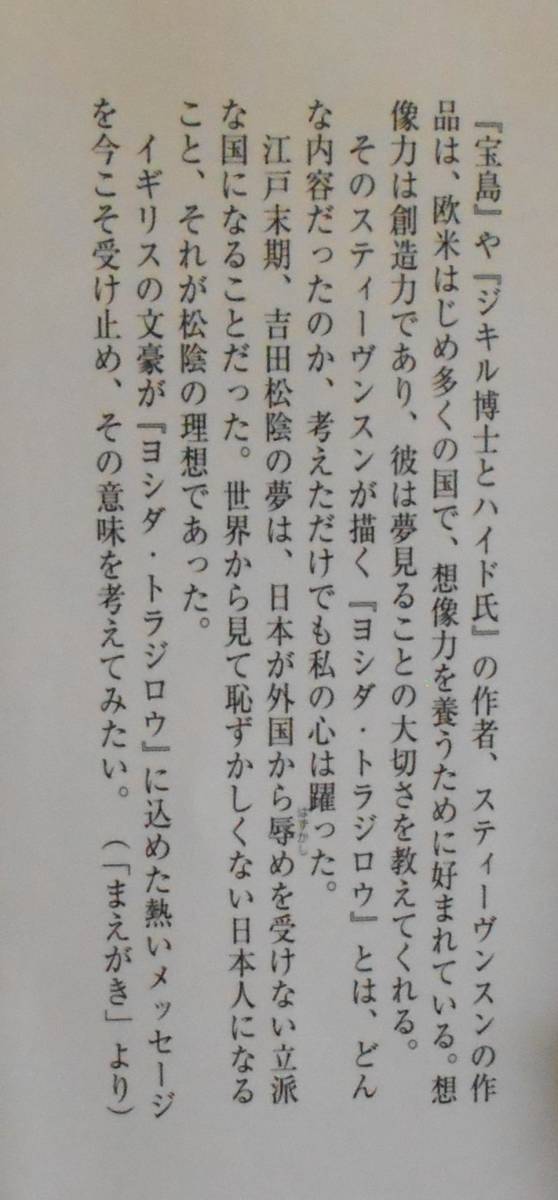 『宝島』や『ジキル博士とハイド氏』の作者、スティーヴンスンの作
品は、欧米はじめ多くの国で、想像力を養うために好まれている。想
像力は創造力であり、彼は夢見ることの大切さを教えてくれる。
そのスティーヴンスンが描く『ヨシダ・トラジロウ』とは、どん
な内容だったのか、考えただけでも私の心は躍った。
江戸末期、吉田松陰の夢は、日本が外国から辱めを受けない立派
はずかし
な国になることだった。世界から見て恥ずかしくない日本人になる
こと、それが松陰の理想であった。
イギリスの文豪が『ヨシダ・トラジロウ』に込めた熱いメッセージ
を今こそ受け止め、その意味を考えてみたい。（「まえがき」より）